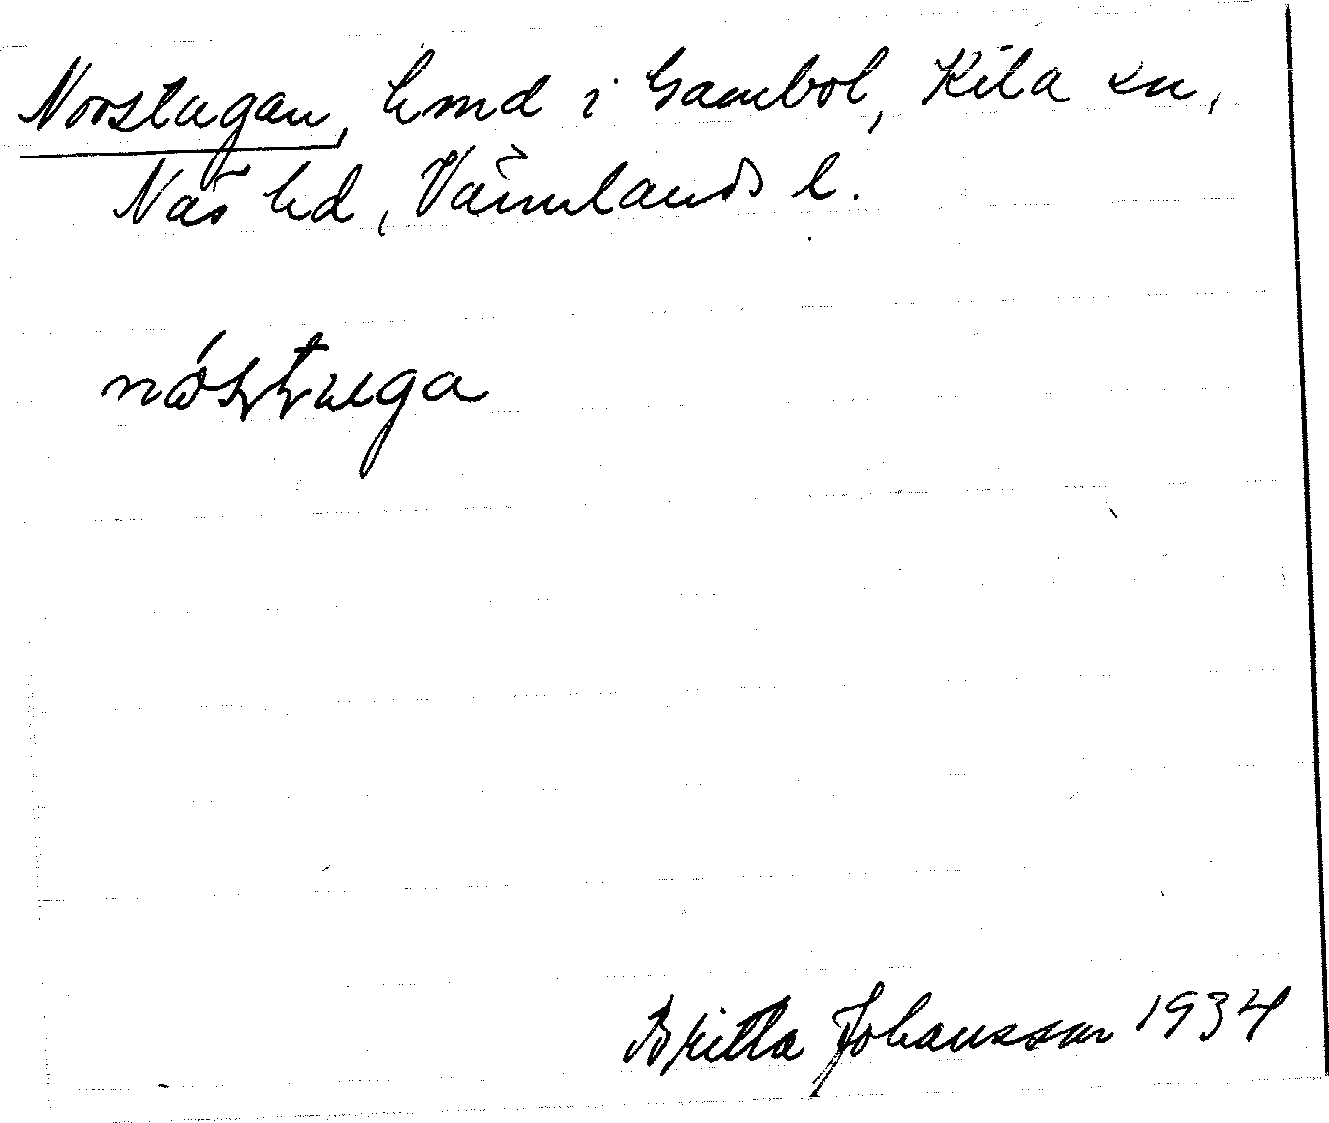 Norstugan, hmd i Gambol, Kila sn,
Näs hd, Värmlands l.
nó̤ʂʈuga
Britta Johansson 1934